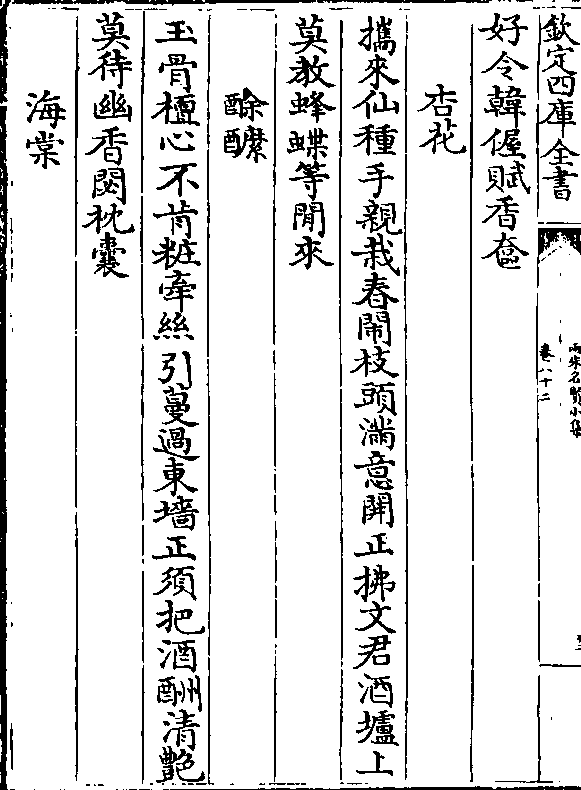 欽定四庫全書
兩宋名賢小集
卷八十二
好令韓偓賦香奩
杏花
攜來仙種手親栽春鬧枝頭滿意開正拂文君酒壚上
莫教蜂蝶等閒來
酴醾
玉骨檀心不肯粧牽絲引蔓過東墻正須把酒酬清艷
莫待幽香閟枕囊
海棠